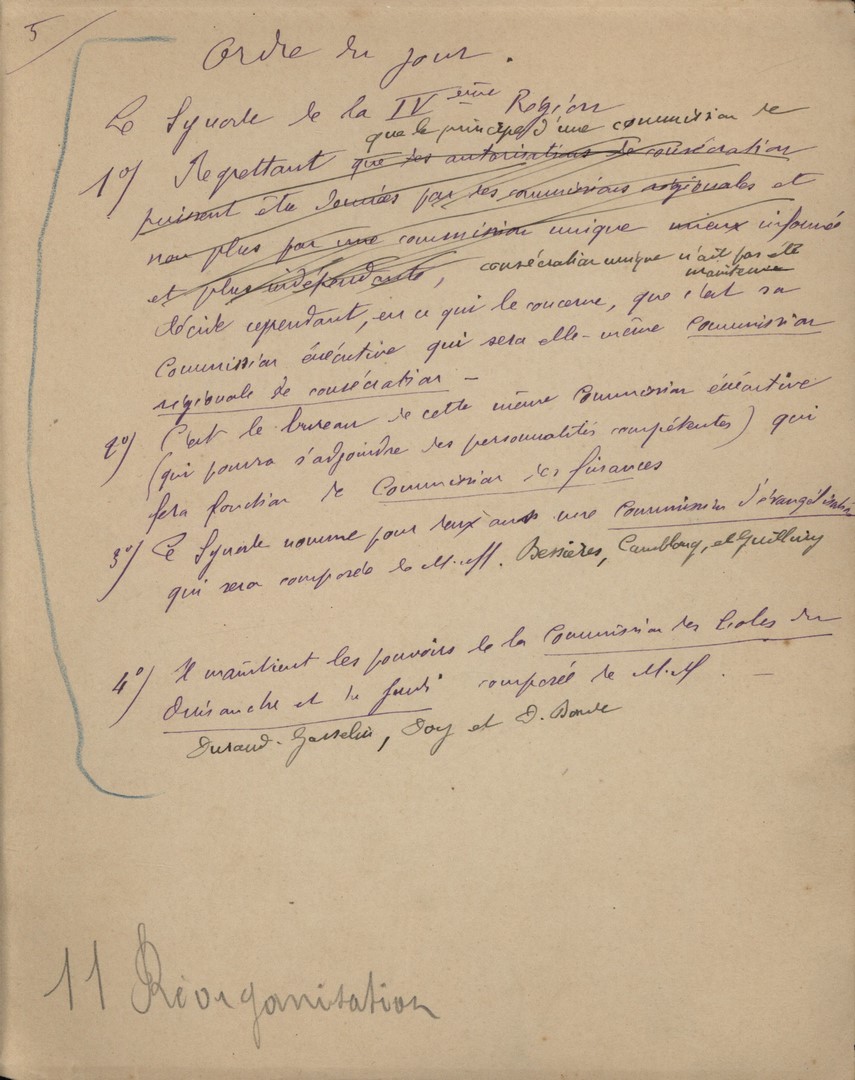 5
Ordre du jour.
Le Synode de la IVème Région
que le principe d'une commission de
1o) Regrettant que des autorisations de consécration
puissent être données par des commissions régionales et
non plus par une commission unique mieux informée
et plus indépendante, consécration unique n'ait pas été
maintenue
décide cependant, en ce qui le concerne, que c'est sa
Commission exécutive qui sera elle-même Commission
régionale de consécration -
2o) C'est le bureau de cette même Commission exécutive
(qui pourra s'adjoindre des personnalités compétentes) qui
fera fonction de Commission des finances
3o) Le Synode nomme pour deux ans une Commission d'évangélisation
qui sera composée de M.M. Bessières, et
4o) Il maintient les pouvoirs de la Commission des Ecoles du
Dimanche et du Jeudi composée de M.M. -
Durand-Gasselin, Doy et D. Bonte
11 Réorganisation